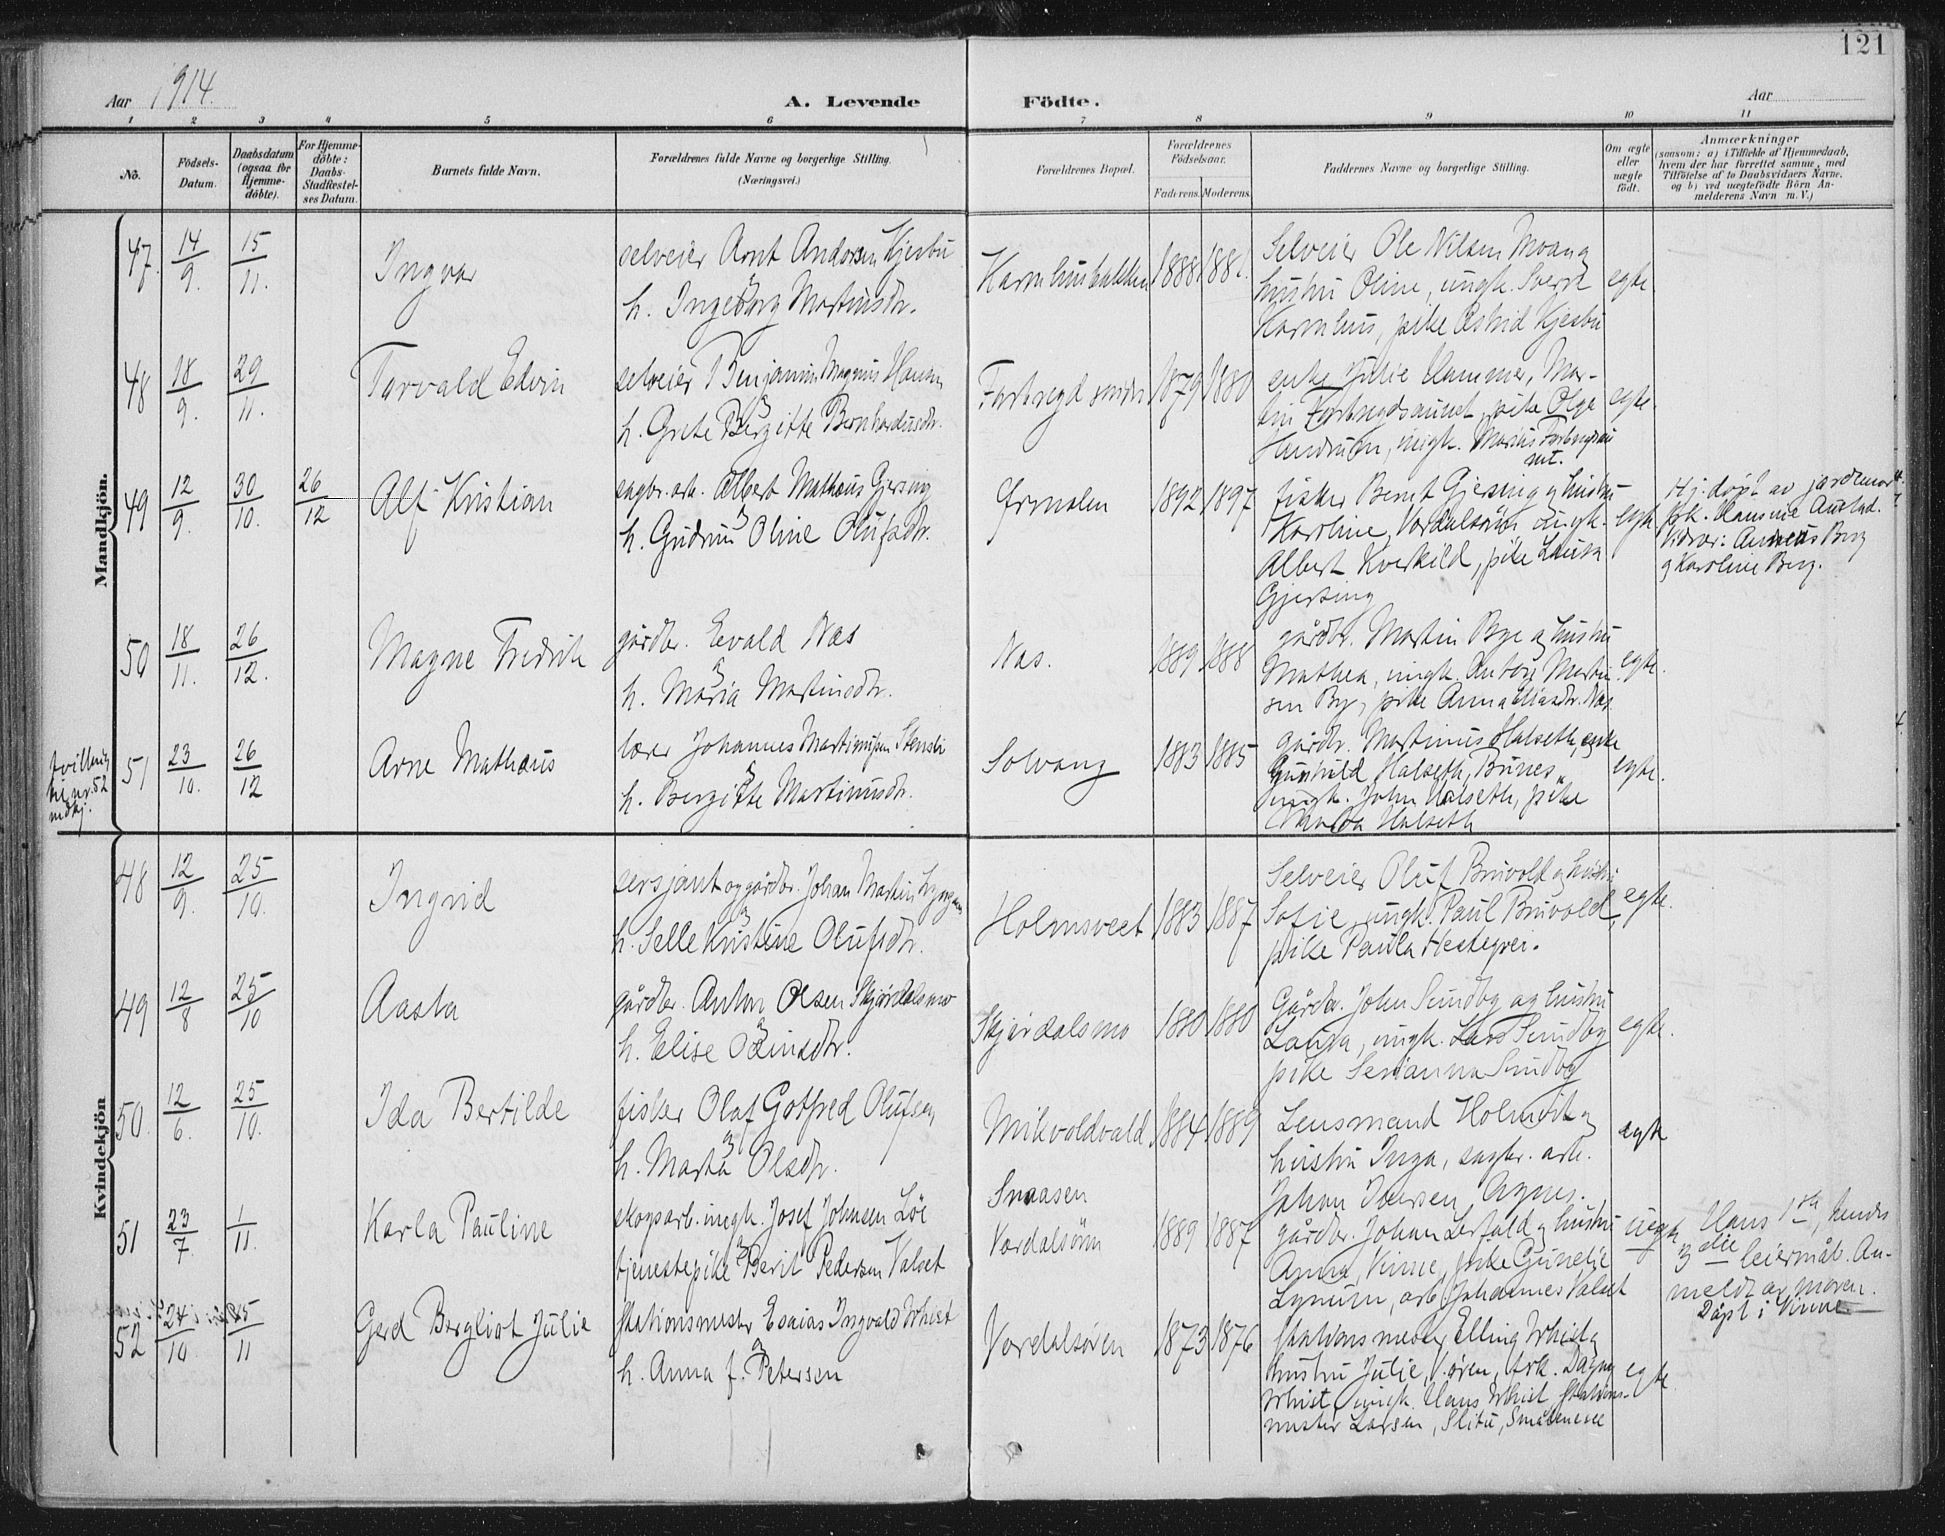 121
Aar 1914.
A. Levende Födte.
Aar
1 2 3 4 5 6 7 8 9 10 11
No.
Födsels-
Datum.
Daabsdatum
(ogsaa for
Hjemme-
döbte).
For Hjemme-
döbte:
Daabs-
Stadfæstel-
ses Datum.
Barnets fulde Navn.
Forældrenes fulde Navne og borgerlige Stilling.
(Næringsvei.)
Forældrenes Bopæl.
Forældrenes
Födselsaar.
Faderens. Moderens.
Faddernes Navne og borgerlige Stilling.
Om ægte
eller
uægte
födt.
Anmærkninger
(saasom: a) i Tilfælde af Hjemmedaab,
hvem der har forrettet samme, med
Tilföielse af to Daabsvidners Navne,
og b) ved uægtefödte Börn An-
melderens Navn m. V.)
Mandkjön.
47. 14/9. 15/11. Ingvar
selveier Arnt Andersen Kjesbu
h. Ingeborg Martinsdr.
1888 1881.
Selveier Ole Nilsen Moan og
hustru Oline, ungk. Sverre
Karmhus, pike Astrid Kjesbu
egte
48 18/9. 29/11. Torvald Edvin
selveier Benjamin Magnus Hansen
h. Grete Bergitte Bernhardusdr.
1879 1880
enke Julie Hammer, Mar-
tin Forbregdsaunet, pike Olga
ungk. Marius Forbregdsau
nt.
egte.
49 12/9. 30/10. 26/12 Alf Kristian
sagbr. arb. Albert Mathæus Gjersing
h. Gudrun Oline Olufsdr.
Ørmelen
1892 1897
fisker Bernt Gjersing og hustru
Karoline, Verdalsøren, ungk.
Albert Kverkild, pike Laura
Gjersing
egte
Hj. døpt av jordmor
frk. Hansine Austad.
Vidner: Andreas Berg
og Karoline Berg.
50 18/11. 26/12. Magne Fredrik
gårdbr. Edvald Næs
h. Maria Martinsdr.
Næs.
1889 1888
gårdbr. Martin Bye og hustru
Mathea, ungk. Anton Martin
sen By, pike Anna Eliasdr. Næs
egte.
tvilling
til nr. 52
mdkj.
51 23/10. 26/12 Arne Mathæus
lærer Johannes Martinusen Stensli
h. Bergitte Martinusdr.
Solvang
1883 1885
gårdbr. Martinus Halseth, enke
Gunhild Halseth, Bunes,
ungk. John Halseth, pike
Halseth
egte.
Kvindekjön
48 12/9. 25/10. Ingrid
sersjant og gårdbr. Johan Martin
h. Selle Kristine Olufsdr.
Holmsveet
1883 1887
Selveier Oluf Bruvold og hustru
Sofie, ungk. Paul Bruvold,
pike Paula Hestegrei.
egte.
49 12/8 25/10 Aasta
gårdbr. Anton Olsen Skjørdalsmo
h. Elise Odinsdr.
Skjørdalsmo
1880 1880
Gårdbr. John Sundby og hustru
Laura, ungk. Lars Sundby
pike Serianna Sundby
egte.
50 12/6. 25/10. Ida Bertilde
fisker Olaf Gotfred Olufsen
h. Marta Olsdr.
Mikvoldvald
1884 1889
Lensmand Holmvik og
hustru Inga, sagbr. arb.
Johan Iversen, Agnes.
egte
51 23/7 1/11. Karla Pauline
skogsarb. ungk. Josef Johnsen Löe
tjenestepike Berit Pedersen Valset
Snaasen
Verdalsøren
1889 1887
gårdbr. Johan Lerfald og hustru
Anna, Vinne, pike Gunelie
Lyneim, arb. Johannes Valset
uegte
Hans 1ste, hendes
3die leiermål. An-
meldt av moren.
Døpt i Vinne
52 24/10. 15/11 Gerd Bergliot Julie
Stationsmester Esaias Ingvald Whist
h. Anna f. Petersen
Verdalsøren
1873 1876
Stationsmester Elling Whist og
hustru Julie, V.øren, frk. Dagny
Whist, ungk. Hans Whist, Stations-
mester Larsen, Slitu, Smålenene
egte